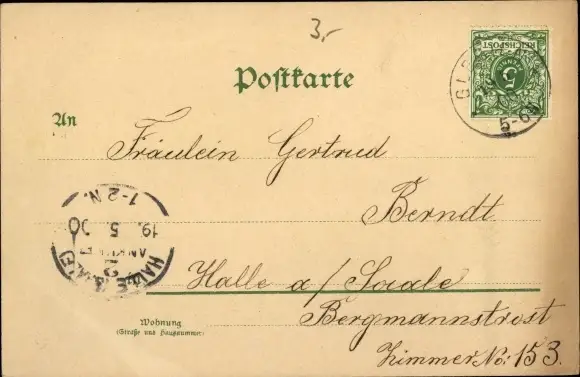 3,-
REICHSPOST
5
5-6N
Postkarte
An
Fräulein Gertrud
Berndt
1-2 N.
19. 5. 00
HALLE (SAALE)
2
Halle a/Saale
Bergmannstrost
Wohnung
(Straße und Hausnummer)
Zimmer No: 153.